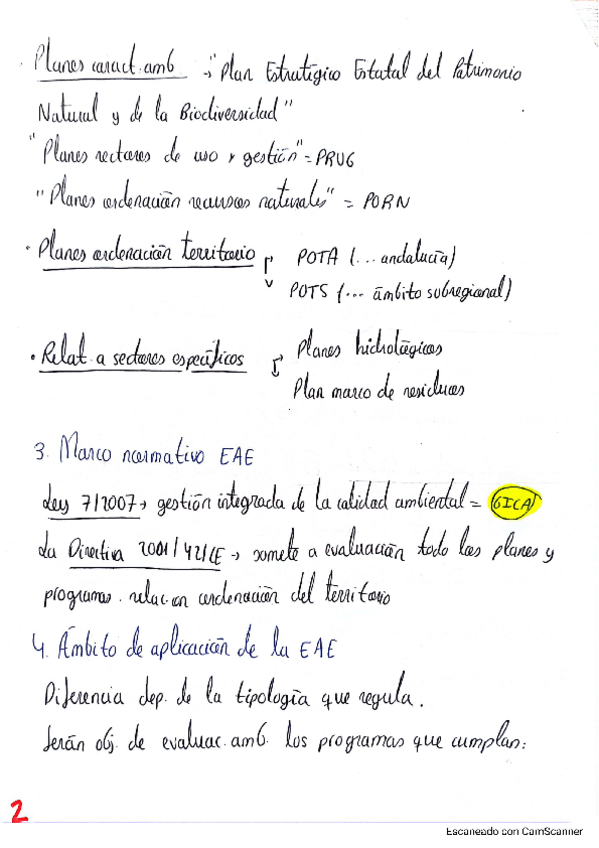 · Planes caract. amb → "Plan Estratégico Estatal del Patrimonio
Natural y de la Biodiversidad"
"Planes rectores de uso y gestión" = PRUG
"Planes ordenación recursos naturales" = PORN
· Planes ordenación territorio → POTA (... andalucía)
POTS (... ámbito subregional)
· Relat. a sectores específicos → Planes hidrológicos
Plan marco de residuos
3. Marco normativo EAE
Ley 7/2007 → gestión integrada de la calidad ambiental = GICA
La Directiva 2001/42/CE → somete a evaluación todo los planes y
programas. relac. en ordenación del territorio
4. Ámbito de aplicación de la EAE
Diferencia dep. de la tipología que regula.
Serán obj. de evaluac. amb. los programas que cumplan:
2
Escaneado con CamScanner